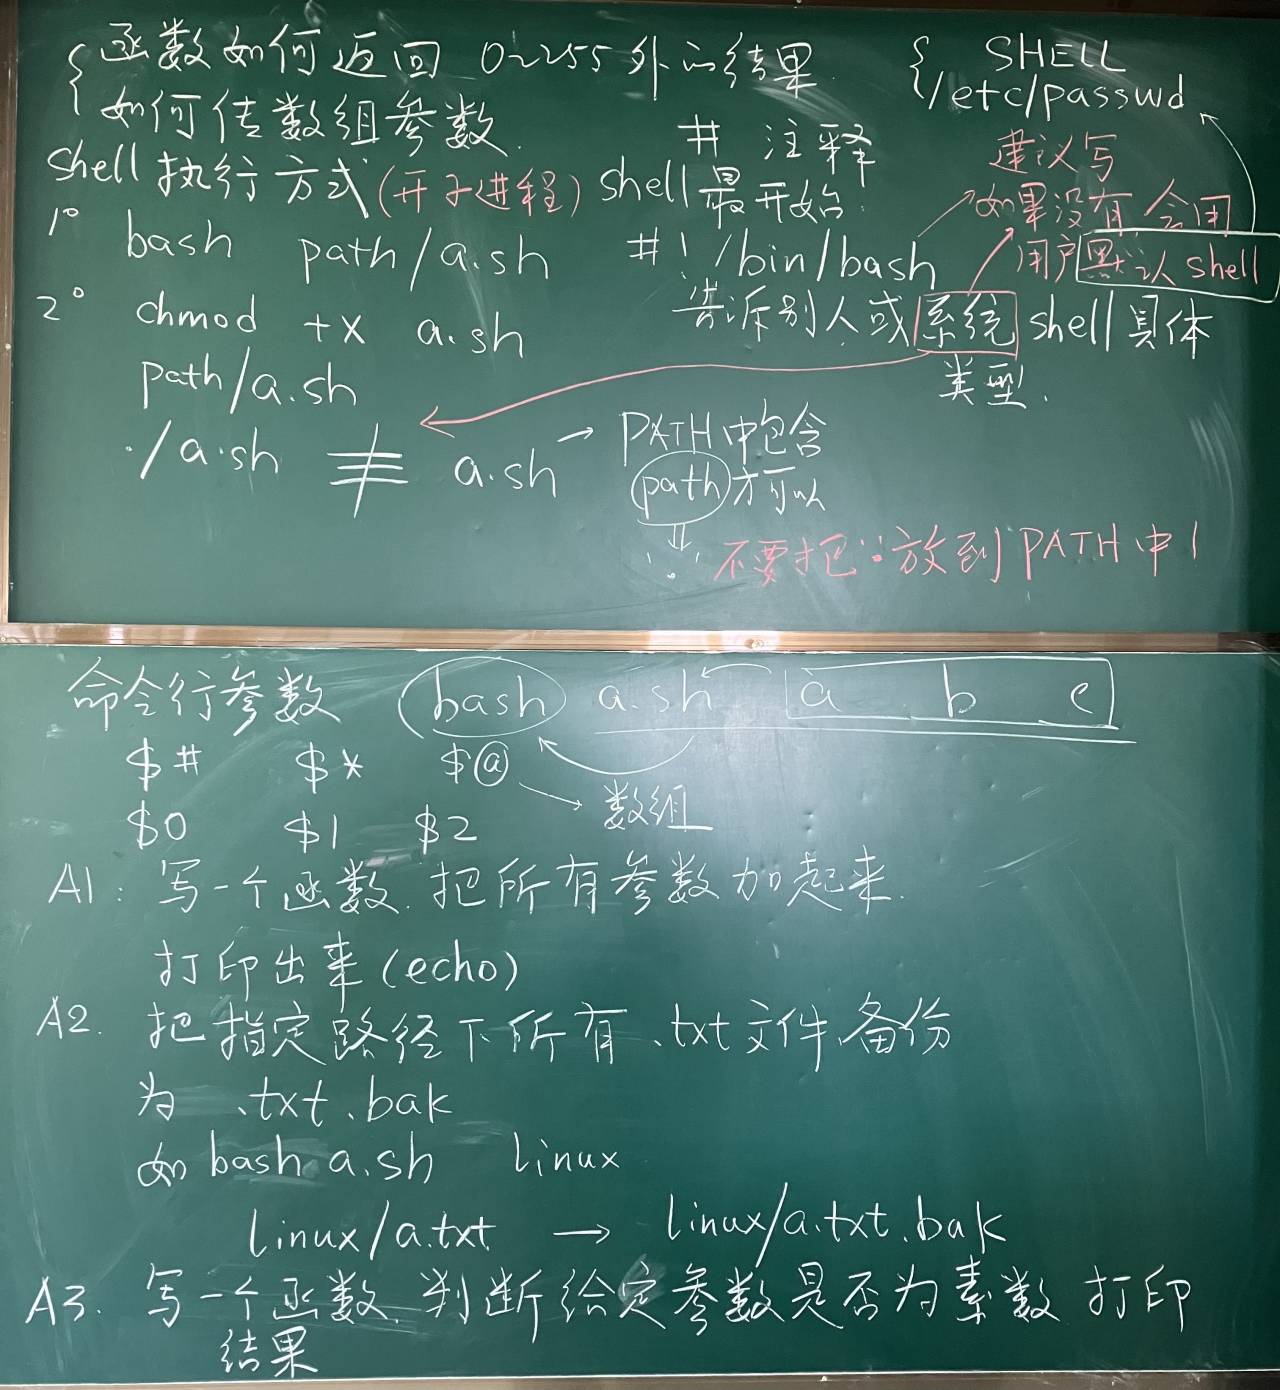 函数如何返回 0~255外的结果
如何传数组参数.
SHELL
/etc/passwd
shell 执行方式(开子进程)
1° bash path/a.sh
2° chmod +x a.sh
path/a.sh
./a.sh ≢ a.sh → PATH中包含
path才可以
⇓
.
不要把 . 放到PATH中!
# 注释
shell最开始.
#!/bin/bash
告诉别人或系统shell具体
类型.
建议写
如果没有,会用
用户默认shell
命令行参数 bash a.sh a b c
$# $* $@ → 数组
$0 $1 $2
A1: 写一个函数.把所有参数加起来.
打印出来(echo)
A2. 把指定路径下所有.txt文件备份
为 .txt.bak
如 bash a.sh linux
linux/a.txt → linux/a.txt.bak
A3. 写一个函数.判断给定参数是否为素数 打印
结果